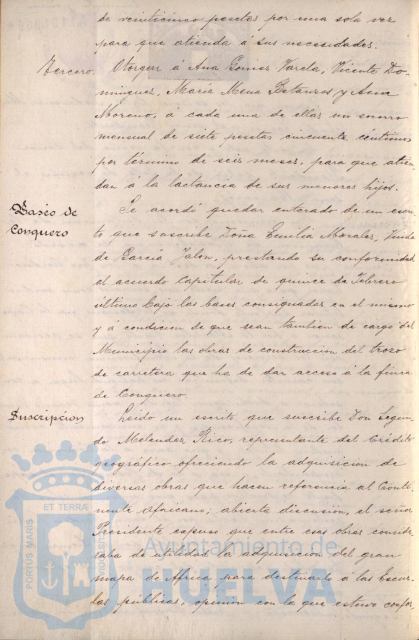 de veinticinco pesetas por una sola vez
para que atienda á sus necesidades.
Tercero. Otorgar á Ana Gomez Varela, Vicente Do-
minguez, María Mena Betanzos y Ana
Moreno, á cada una de ellas un socorro
mensual de siete pesetas cincuenta céntimos
por término de seis meses, para que atien-
dan á la lactancia de sus menores hijos.
Paseo de
Conquero
Se acordó quedar enterado de un escri-
to que suscribe Doña Emilia Morales, Viuda
de García Jalon, prestando su conformidad
al acuerdo Capitular de quince de Febrero
último bajo las bases consignadas en el mismo
y á condicion de que sean tambien de cargo del
Municipio las obras de construccion del trozo
de carretera que ha de dar acceso á la finca
de Conquero.
Suscripcion
Leido un escrito que suscribe Don Segun-
do Melendez Rico, representante del Crédito
geográfico ofreciendo la adquisicion de
diversas obras que hacen referencia al Conti-
nente Africano; abierta discusion, el señor
Presidente expuso que entre esas obras conside-
raba de utilidad la adquisicion del gran
mapa de Africa para destinarlo á las Escue-
las públicas, opinion con la que estuvo confor
PORTUS MARIS
ET TERRAE
CUSTODIA
Ayuntamiento de
HUELVA